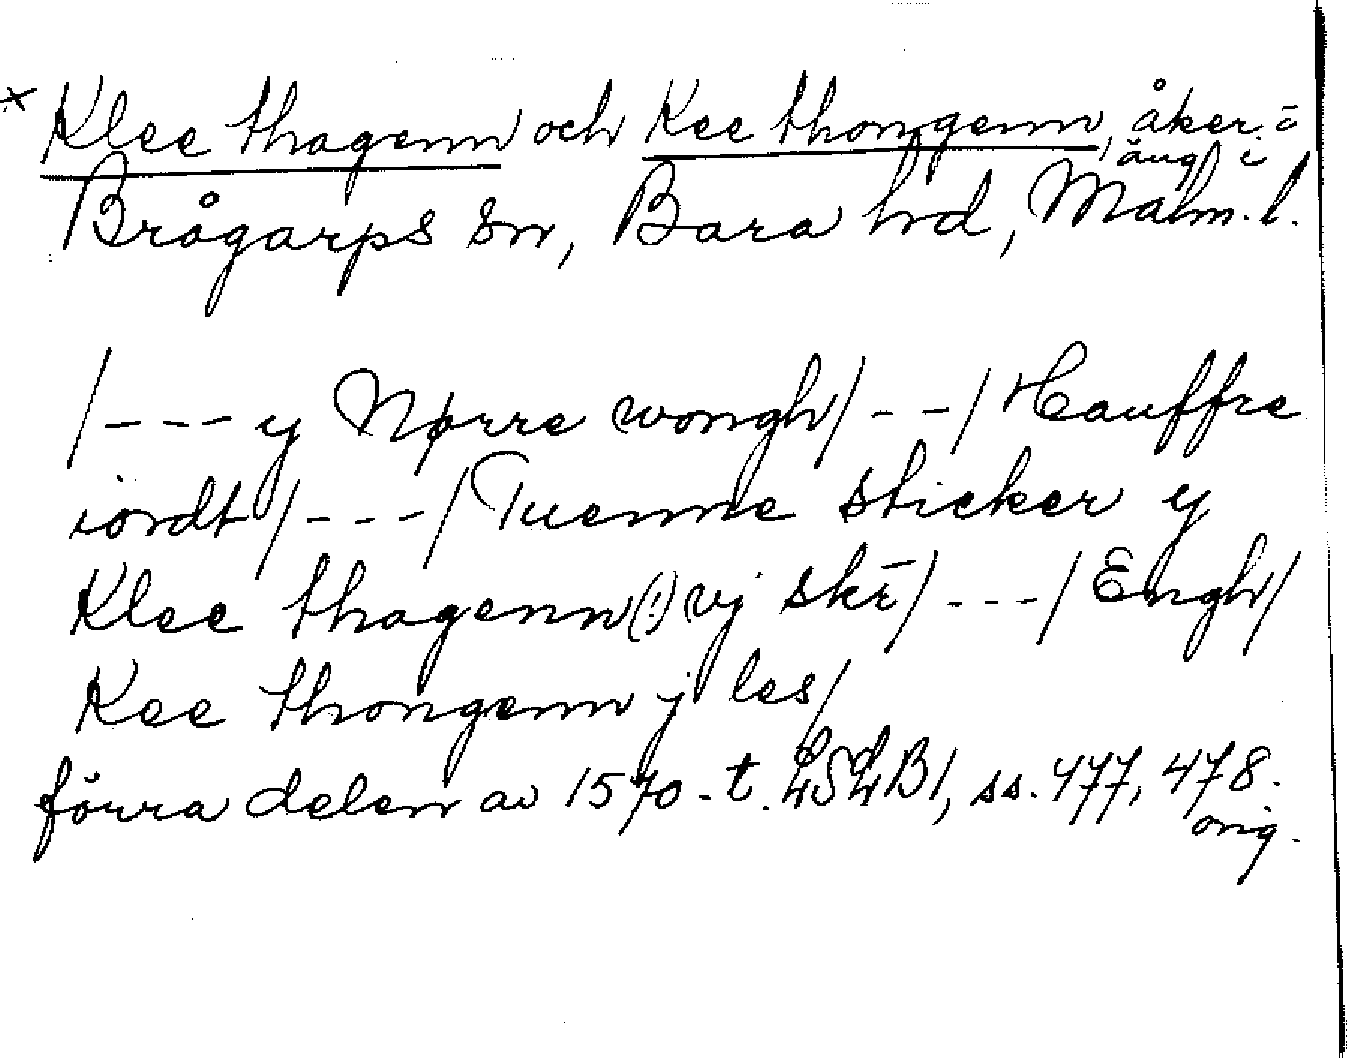 * Klee thagenn och Kee thongenn, åker o
äng i
Brågarps sn, Bara hd, Malm. l.
/--- y Nørre wongh/--/ Hauffre
iordt/---/ Tuenne sticker y
Klee thagenn(!) vj skē/---/ Engh/
Kee thongenn j les/
förra delen av 1570-t. LSLB1, ss. 477, 478.
orig.